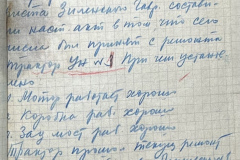 листа Зиленского Гавр. состави-
ли наст. акт в том что сего
числа был принят с ремонта
трактор Ун №1 При чем устано
лено
1. Мотор работает хорошо
Коробка раб. хорошо
Зад мост раб хорошо
Трактор прошел текущ ремонт